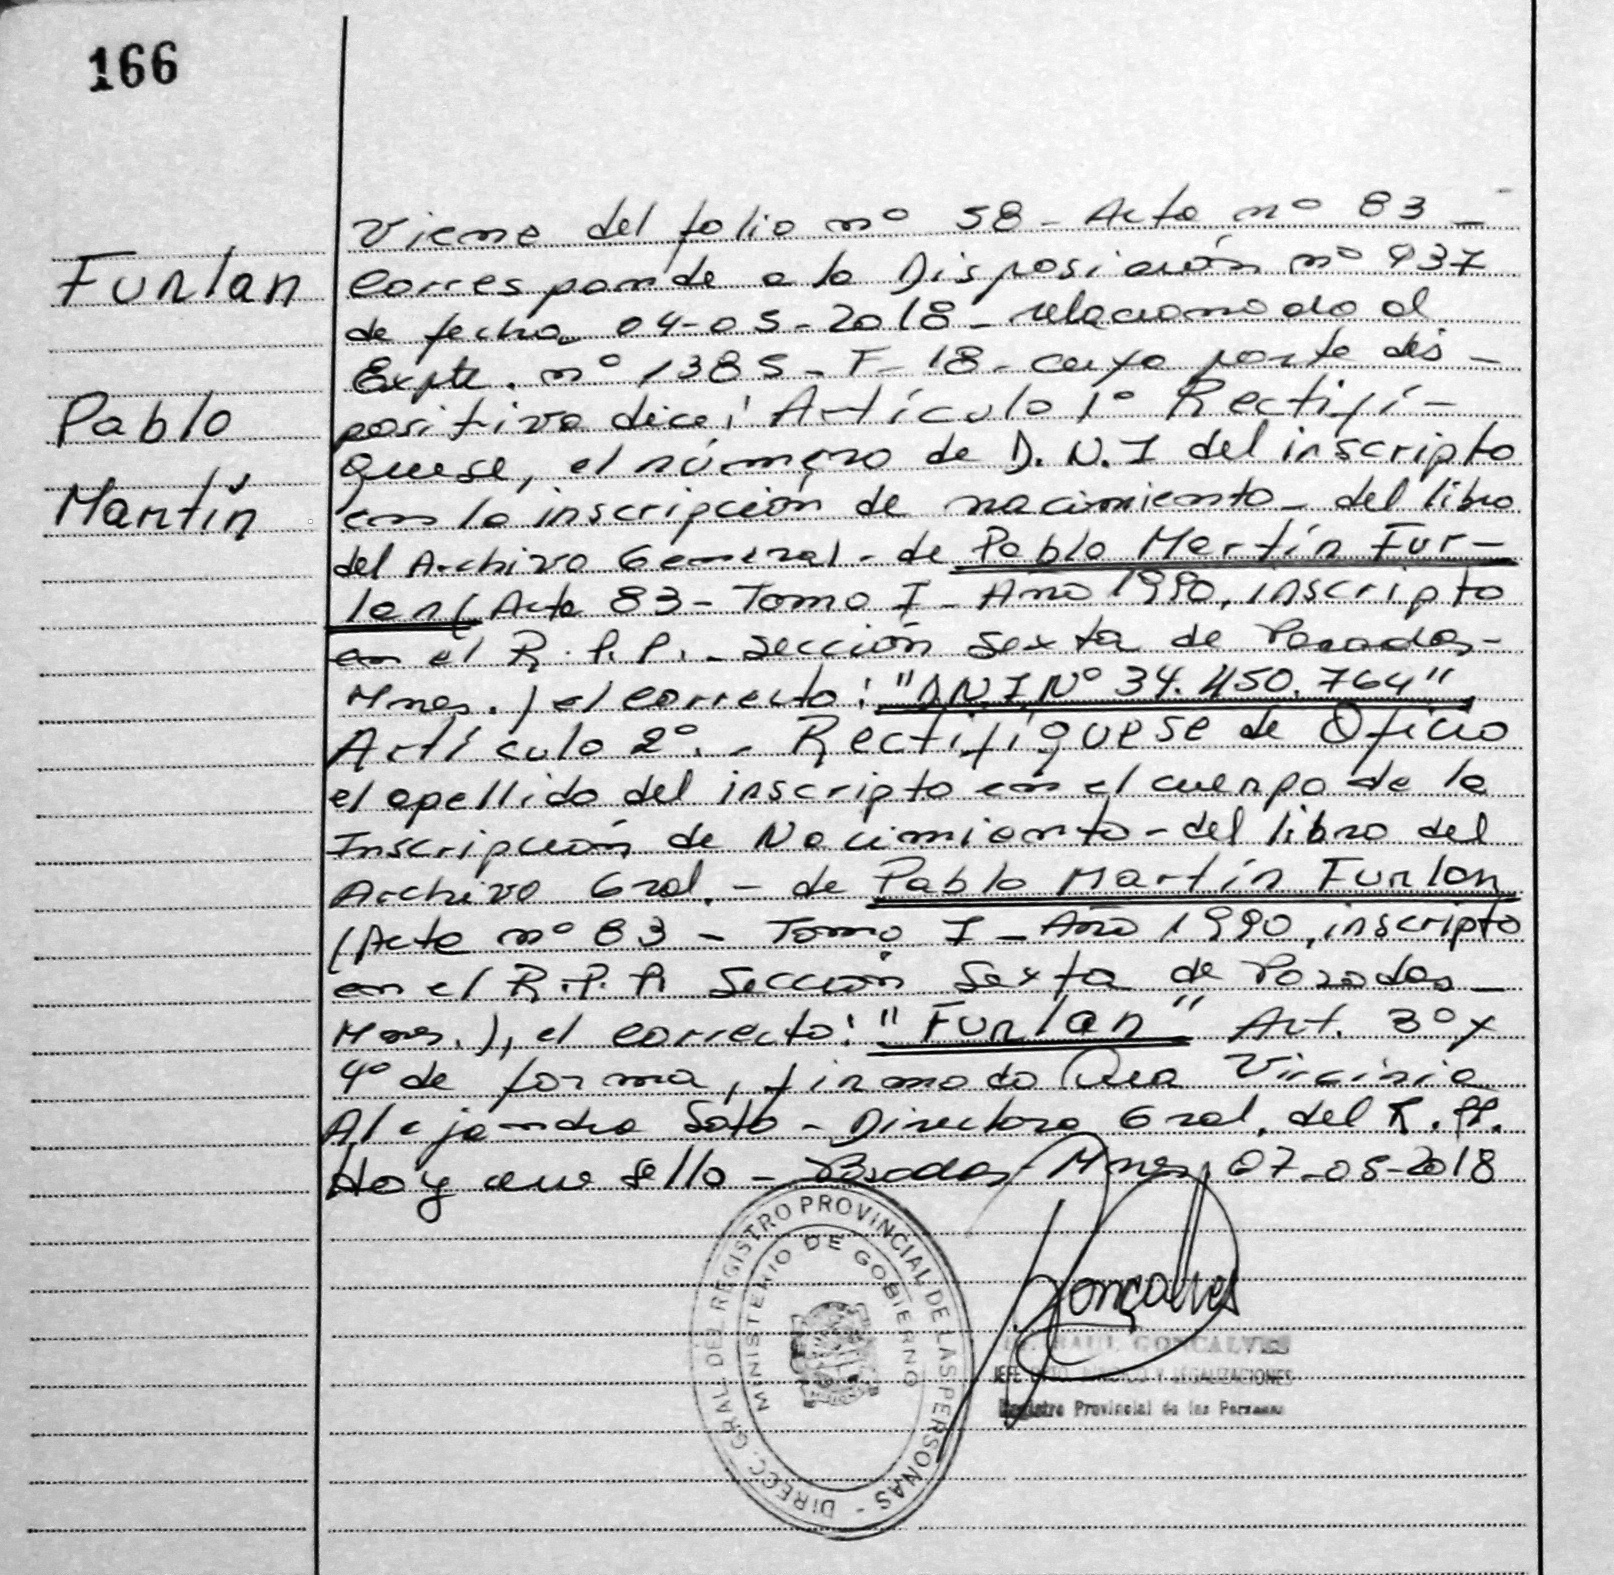 166
Furlan
Pablo
Martín
Viene del folio nº 58 - Acta nº 83 -
corresponde a la Disposición nº 937
de fecha 04-05-2018 - relacionado al
Expte. nº 1385 - F - 18 - cuya parte dis -
positiva dice: Artículo 1º Rectifí -
quese, el número de D.N.I del inscripto
en la inscripción de nacimiento - del libro
del Archivo General - de Pablo Martín Fur -
lan (Acta 83 - Tomo I - Año 1990, inscripto
en el R.P.P. - Sección Sexta de Posadas -
Mnes.) el correcto: "D.N.I Nº 34.450.764"
Artículo 2º. - Rectifíquese de Oficio
el apellido del inscripto en el cuerpo de la
Inscripción de Nacimiento - del libro del
Archivo Gral. - de Pablo Martín Furlan
(Acta nº 83 - Tomo I - Año 1990, inscripto
en el R.P.P. Sección Sexta de Posadas -
Mnes.), el correcto: "Furlan" Art. 3º y
4º de forma, firmado Dra Virginia
Alejandra Soto - Directora Gral. del R.PP.
Hoy una sello - Posadas - Mnes, 07-05-2018
DIRECC. GRAL. DEL REGISTRO PROVINCIAL DE LAS PERSONAS -
MINISTERIO DE GOBIERNO
Gonçalves
RAUL GONCALVES
JEFE Y LEGALIZACIONES
Registro Provincial de las Personas